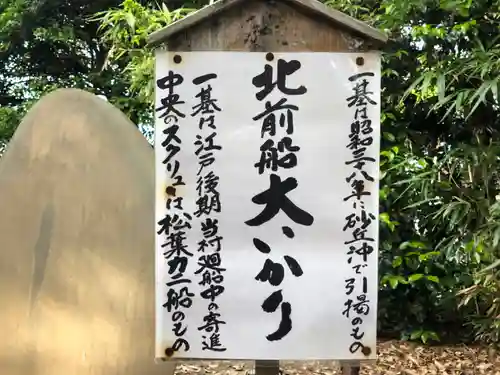 北前船大いかり
一基は昭和三十八年に砂丘沖で引揚のもの
一基は江戸後期当村廻船中の寄進
中央のスクリューは松葉カニ船のもの